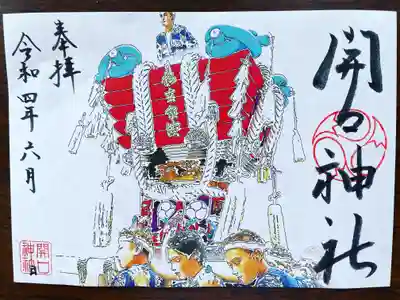 開口神社
奉拝
令和四年六月
開口
神社